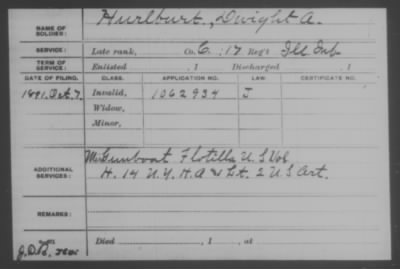 NAME OF SOLDIER: Hurlburt, Dwight A.
SERVICE: Late rank, Co. C, 17 Reg't Ill Inf
TERM OF SERVICE: Enlisted , 1 Discharged , 1
DATE OF FILING. CLASS. APPLICATION NO. LAW. CERTIFICATE NO.
1891, Oct. 7 Invalid, 1062934 J
Widow,
Minor,
Gunboat Flotilla U.S. Vol
ADDITIONAL SERVICES: H. 14 N.Y. H.A. & Lt. 2 U S Art.
REMARKS:
Died , 1 , at